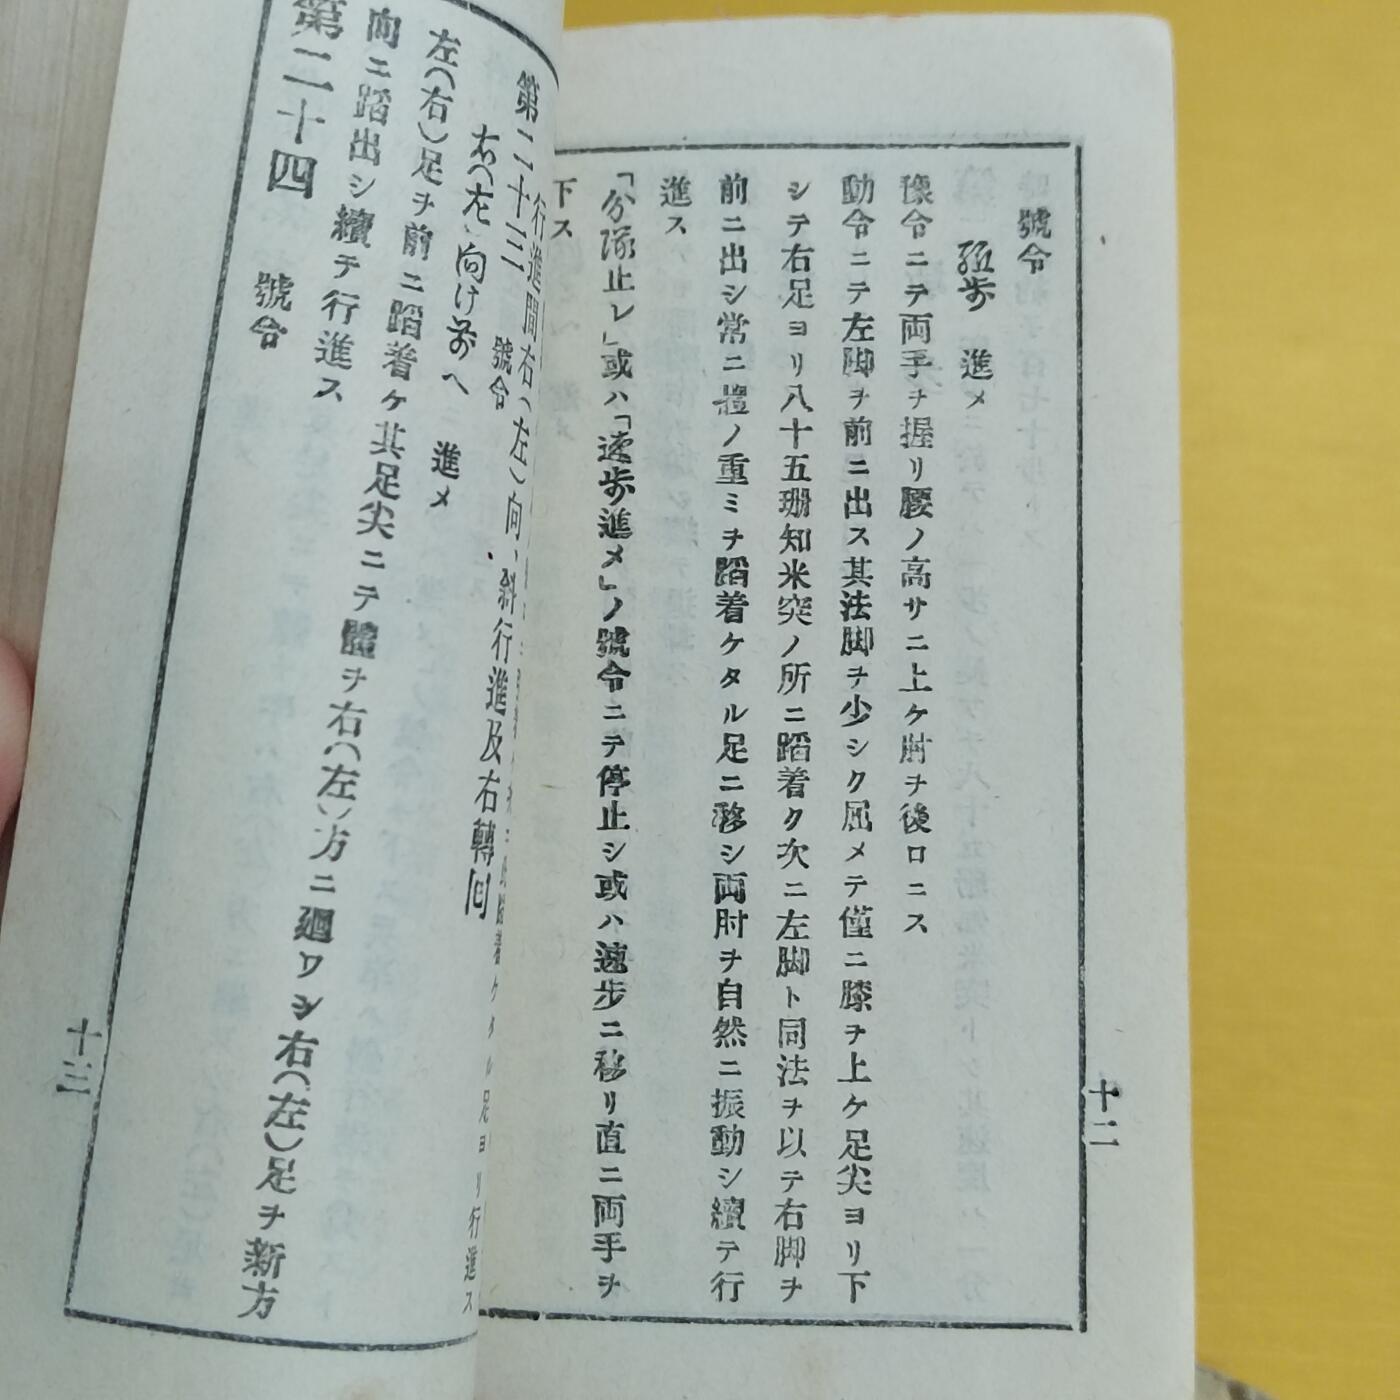 號令
駈步 進メ
豫令ニテ両手ヲ握リ腰ノ高サニ上ケ肘ヲ後ロニス
動令ニテ左脚ヲ前ニ出ス其法脚ヲ少シク屈メテ僅ニ膝ヲ上ケ足尖ヨリ下
シテ右足ヨリ八十五珊知米突ノ所ニ蹈着ク次ニ左脚ト同法ヲ以テ右脚ヲ
前ニ出シ常ニ體ノ重ミヲ蹈着ケタル足ニ移シ両肘ヲ自然ニ振動シ續テ行
進ス
「分隊止レ」或ハ「速步進メ」ノ號令ニテ停止シ或ハ速步ニ移リ直ニ両手ヲ
下ス
十二
行進間右(左)向、斜行進及右轉回
第二十三 號令
右(左)向け前へ 進メ
左(右)足ヲ前ニ蹈着ケ其足尖ニテ體ヲ右(左)方ニ廻ワシ右(左)足ヲ新方
向ニ蹈出シ續テ行進ス
第二十四 號令
十三